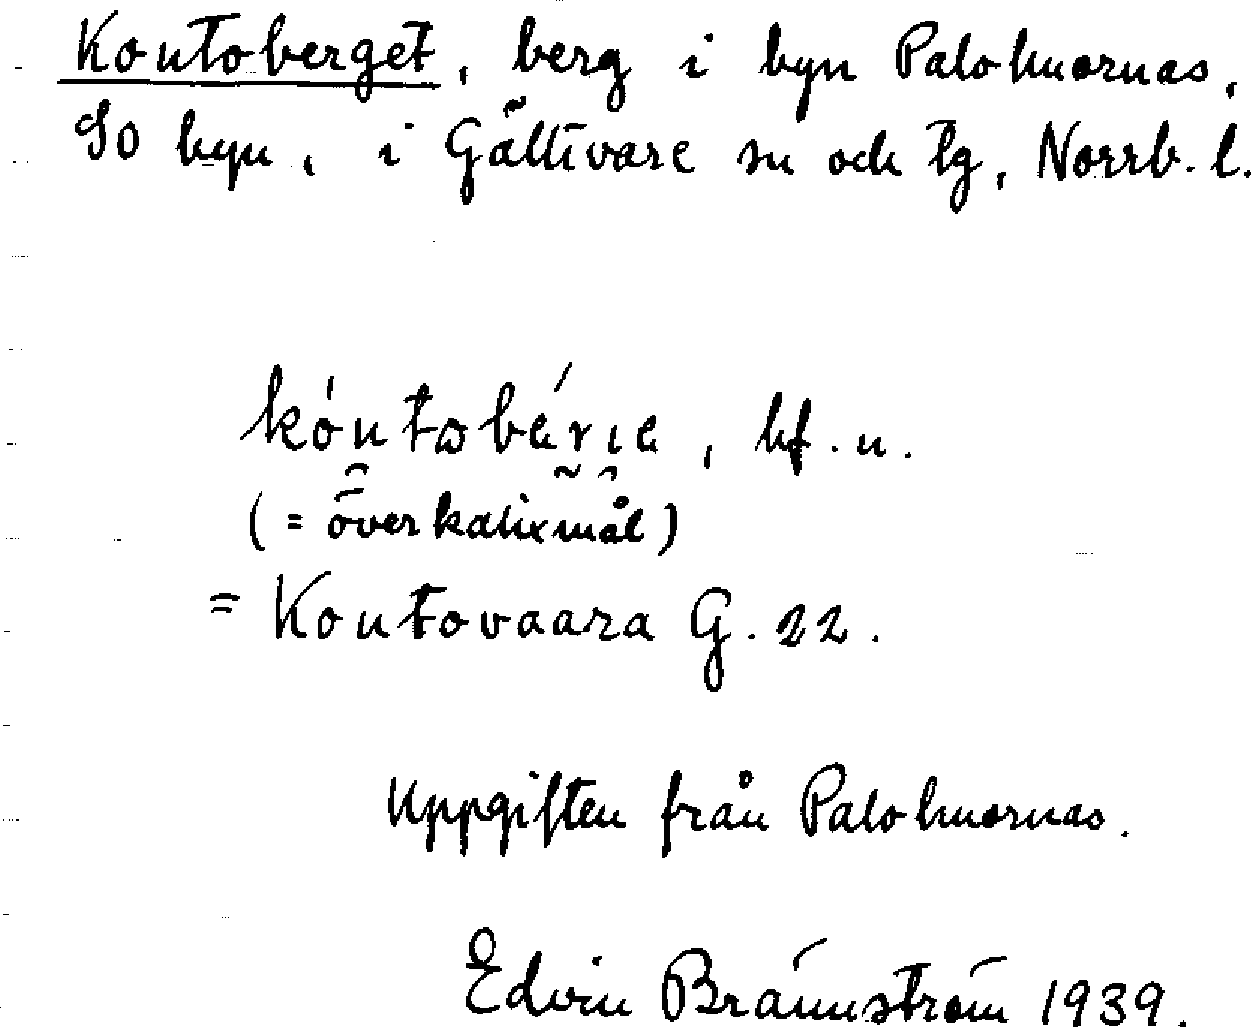 Kontoberget, berg i byn Palohuornas,
SO byn, i Gällivare sn och tg, Norrb. l.
kóntobérıe, bf. n.
(= överkalixmål)
= Kontovaara G. 22.
Uppgiften från Palohuornas.
Edvin Brännström 1939.